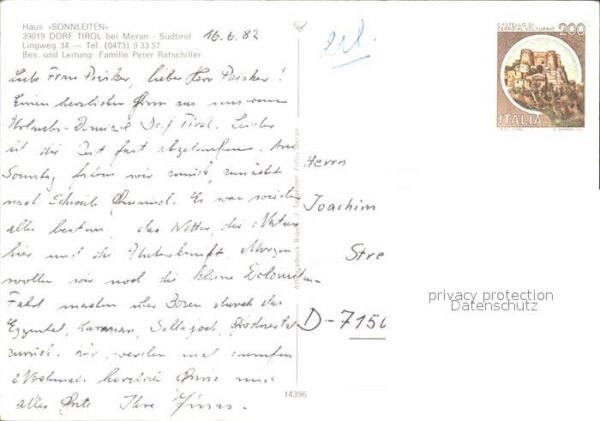 Haus «SONNLEITEN»
39019 DORF TIROL bei Meran - Südtirol
Lingweg 34 — Tel. (0473) 9 33 57
Bes. und Leitung: Familie Peter Ratschiller
16.6.82
Liebe Frau Pärsker, lieber Herr Pärsker!
Einen herzlichen Gruß aus unserem
Urlaubs-Domizil Dorf Tirol. Leider
ist die Zeit fast abgelaufen. Am
Sonntag fahren wir zurück, zunächst
nach Schwäb. Gmünd. Es war wieder
alles bestens, das Wetter, die Natur
hier und die Unterkunft. Morgen
wollen wir noch die kleine Dolomiten-
Fahrt machen über Bozen durch das
Eggental, Karersee, Sellajoch, Grödnertal
zurück. Wir werden mal anrufen
Nochmals herzliche Grüße und
alles Gute Ihre
CASTELLO DI
CERRO AL VOLTURNO
200
ITALIA
Herrn
Joachim
Stre
D-7150
14396
privacy protection
Datenschutz